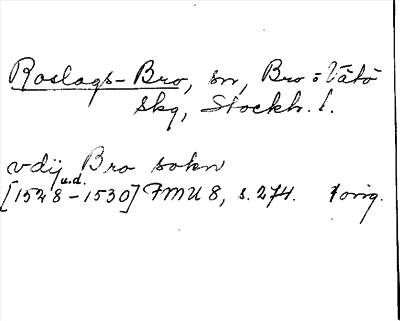 Roslags-Bro, sn, Bro o Vätö
skg, Stockh. l.
vdij Bro sokn
u.d.
[1528-1530] FMU 8, s. 274. 1 orig.